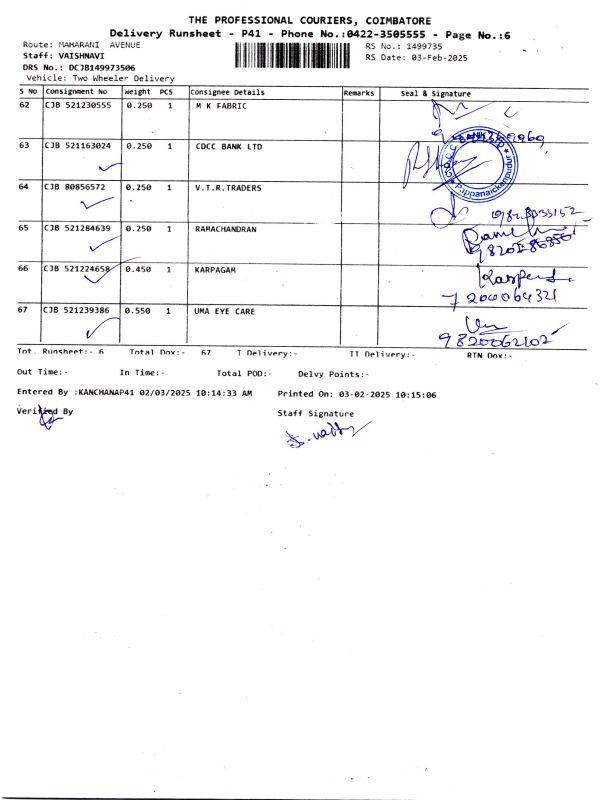 THE PROFESSIONAL COURIERS, COIMBATORE
Delivery Runsheet - P41 - Phone No.:0422-3505555 - Page No.:6
Route: MAHARANI AVENUE RS No.: 1499735
Staff: VAISHNAVI RS Date: 03-Feb-2025
DRS No.: DCJB149973506
Vehicle: Two Wheeler Delivery
S No Consignment No Weight PCS Consignee Details Remarks Seal & Signature
62 CJB 521230555 0.250 1 M K FABRIC
63 CJB 521163024 0.250 1 CDCC BANK LTD
Pappanaickenpudur
64 CJB 80856572 0.250 1 V.T.R.TRADERS
65 CJB 521284639 0.250 1 RAMACHANDRAN
66 CJB 521224658 0.450 1 KARPAGAM
7200064321
67 CJB 521239386 0.550 1 UMA EYE CARE
9820062102
Tot. Runsheet:- 6 Total Dox:- 67 I Delivery:- II Delivery:- RTN Dox:-
Out Time:- In Time:- Total POD:- Delvy Points:-
Entered By :KANCHANAP41 02/03/2025 10:14:33 AM Printed On: 03-02-2025 10:15:06
Verified By Staff Signature